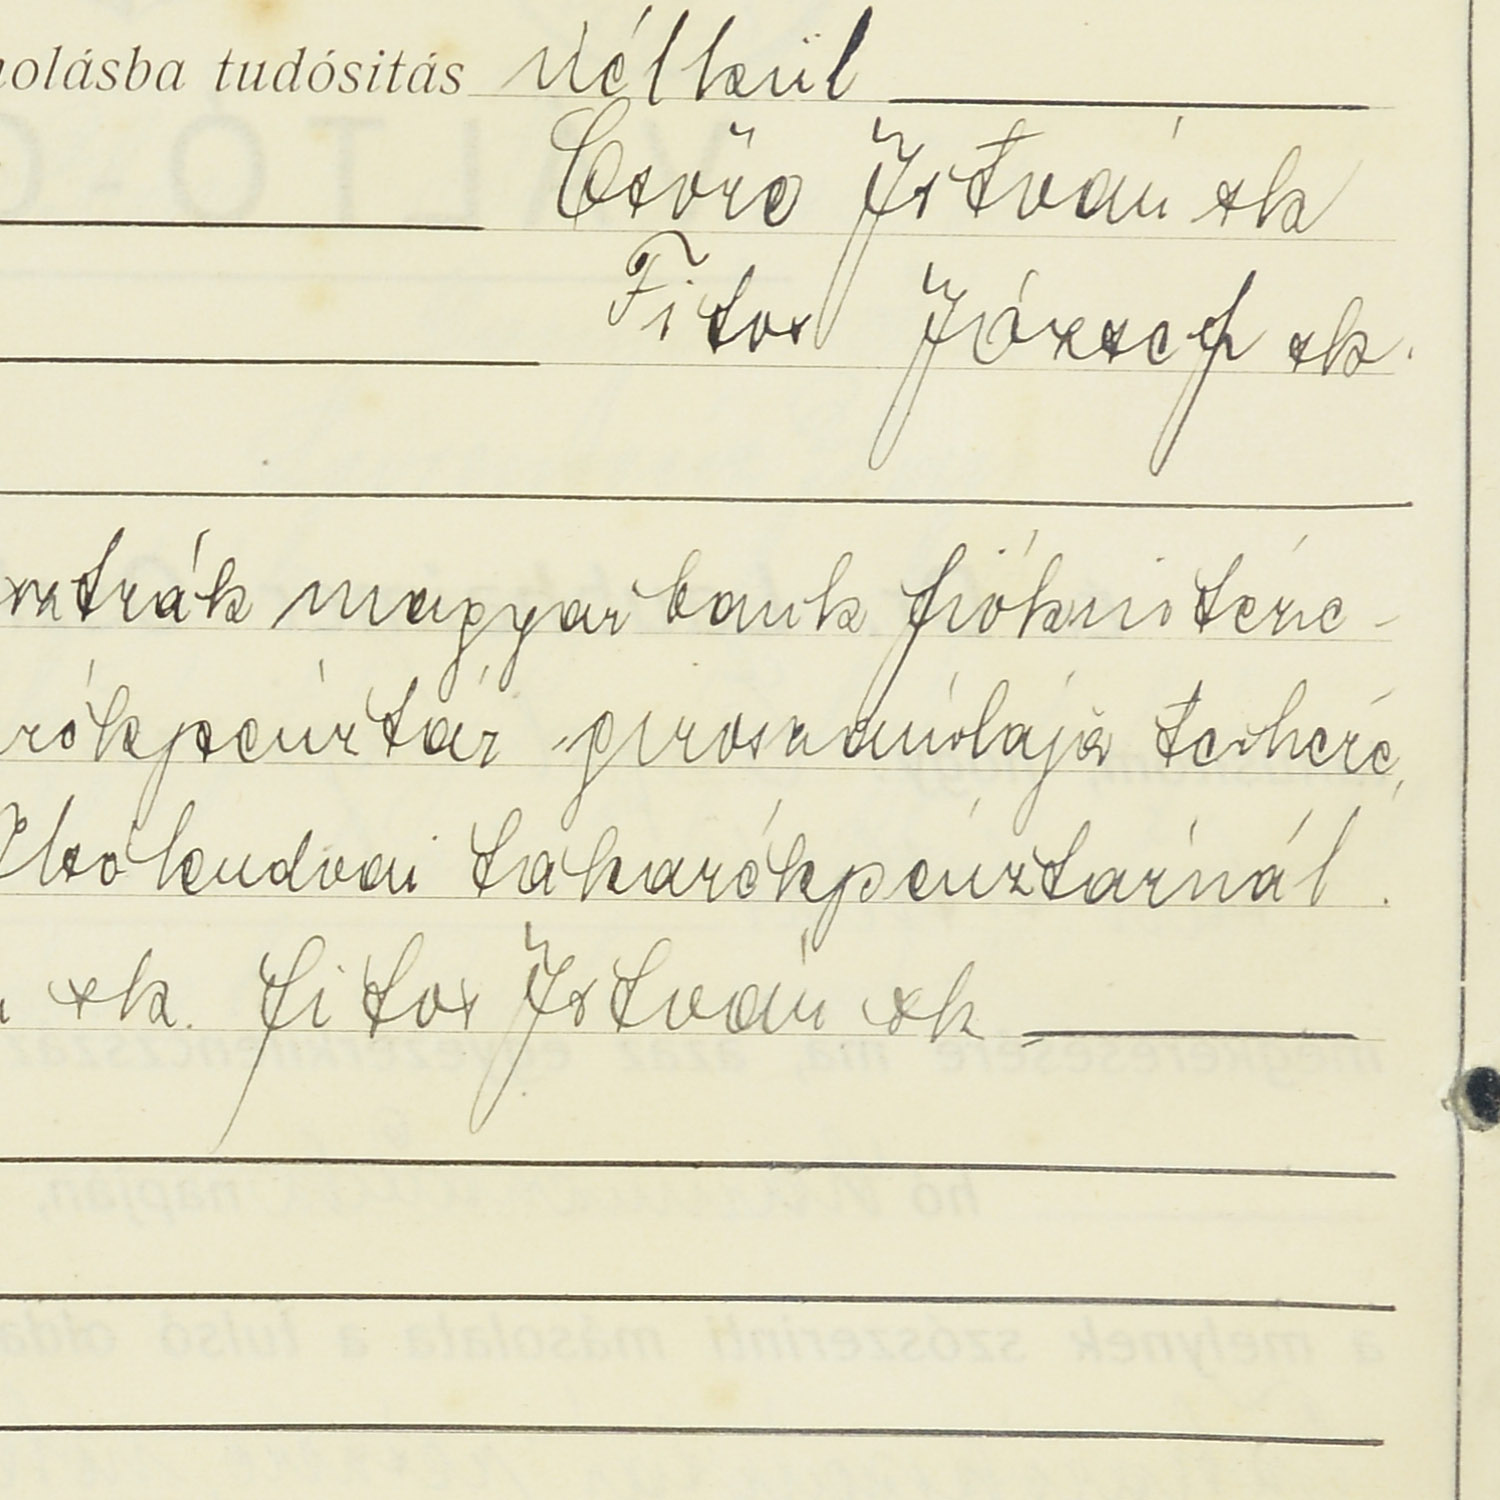 nolásba tudósitás nélkül
Csőre István sk
Fitos József sk.
osztrák magyar bank fiókintéze-
rékpénztár giroszámlája terhére,
Alsólendvai takarékpénztárnál.
sk. fitos István sk